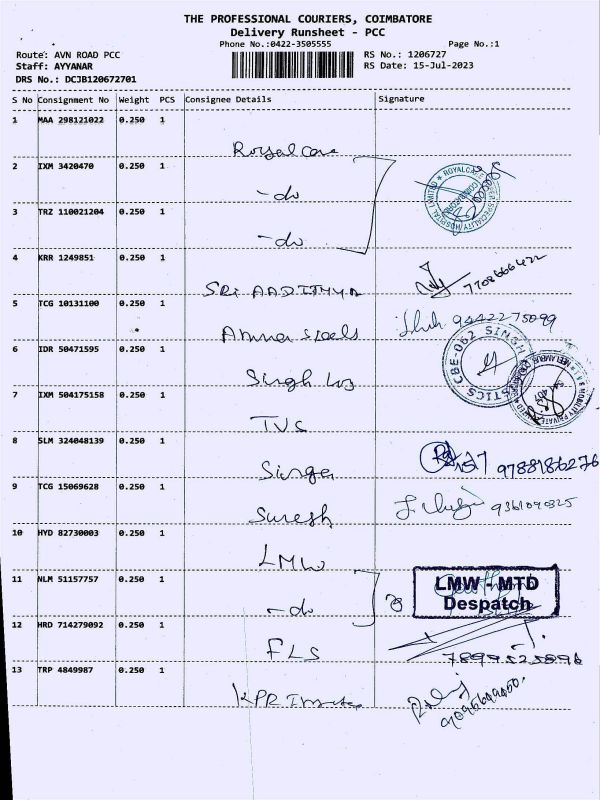 THE PROFESSIONAL COURIERS, COIMBATORE
Delivery Runsheet - PCC
Phone No.:0422-3505555
Page No.:1
Route: AVN ROAD PCC
RS No.: 1206727
Staff: AYYANAR
RS Date: 15-Jul-2023
DRS No.: DCJB120672701
S No Consignment No Weight PCS Consignee Details Signature
1 MAA 298121022 0.250 1
Royal Care
2 IXM 3420470 0.250 1
- do
3 TRZ 110021204 0.250 1
- do
4 KRR 1249851 0.250 1
SRI AADITHYA 7708666422
5 TCG 10131100 0.250 1
Amma Steels 9442275099
6 IDR 50471595 0.250 1
Singh Log
7 IXM 504175158 0.250 1
TVS
8 SLM 324048139 0.250 1
Singer 9788186276
9 TCG 15069628 0.250 1
Suresh
10 HYD 82730003 0.250 1
LMW
11 NLM 51157757 0.250 1
- do
LMW - MTD
Despatch
12 HRD 714279092 0.250 1
FLS
13 TRP 4849987 0.250 1
KPR